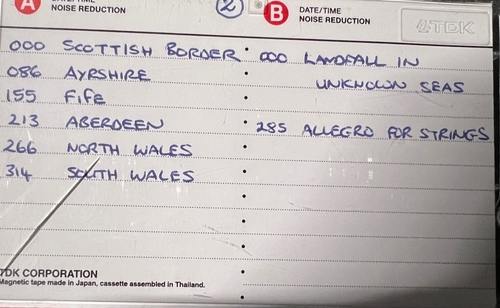 A DATE/TIME
NOISE REDUCTION
2
B DATE/TIME
NOISE REDUCTION
TDK
000 SCOTTISH BORDER
086 AYRSHIRE
155 FIFE
213 ABERDEEN
266 NORTH WALES
314 SOUTH WALES
000 LANDFALL IN
UNKNOWN SEAS
285 ALLEGRO FOR STRINGS
TDK CORPORATION
Magnetic tape made in Japan, cassette assembled in Thailand.